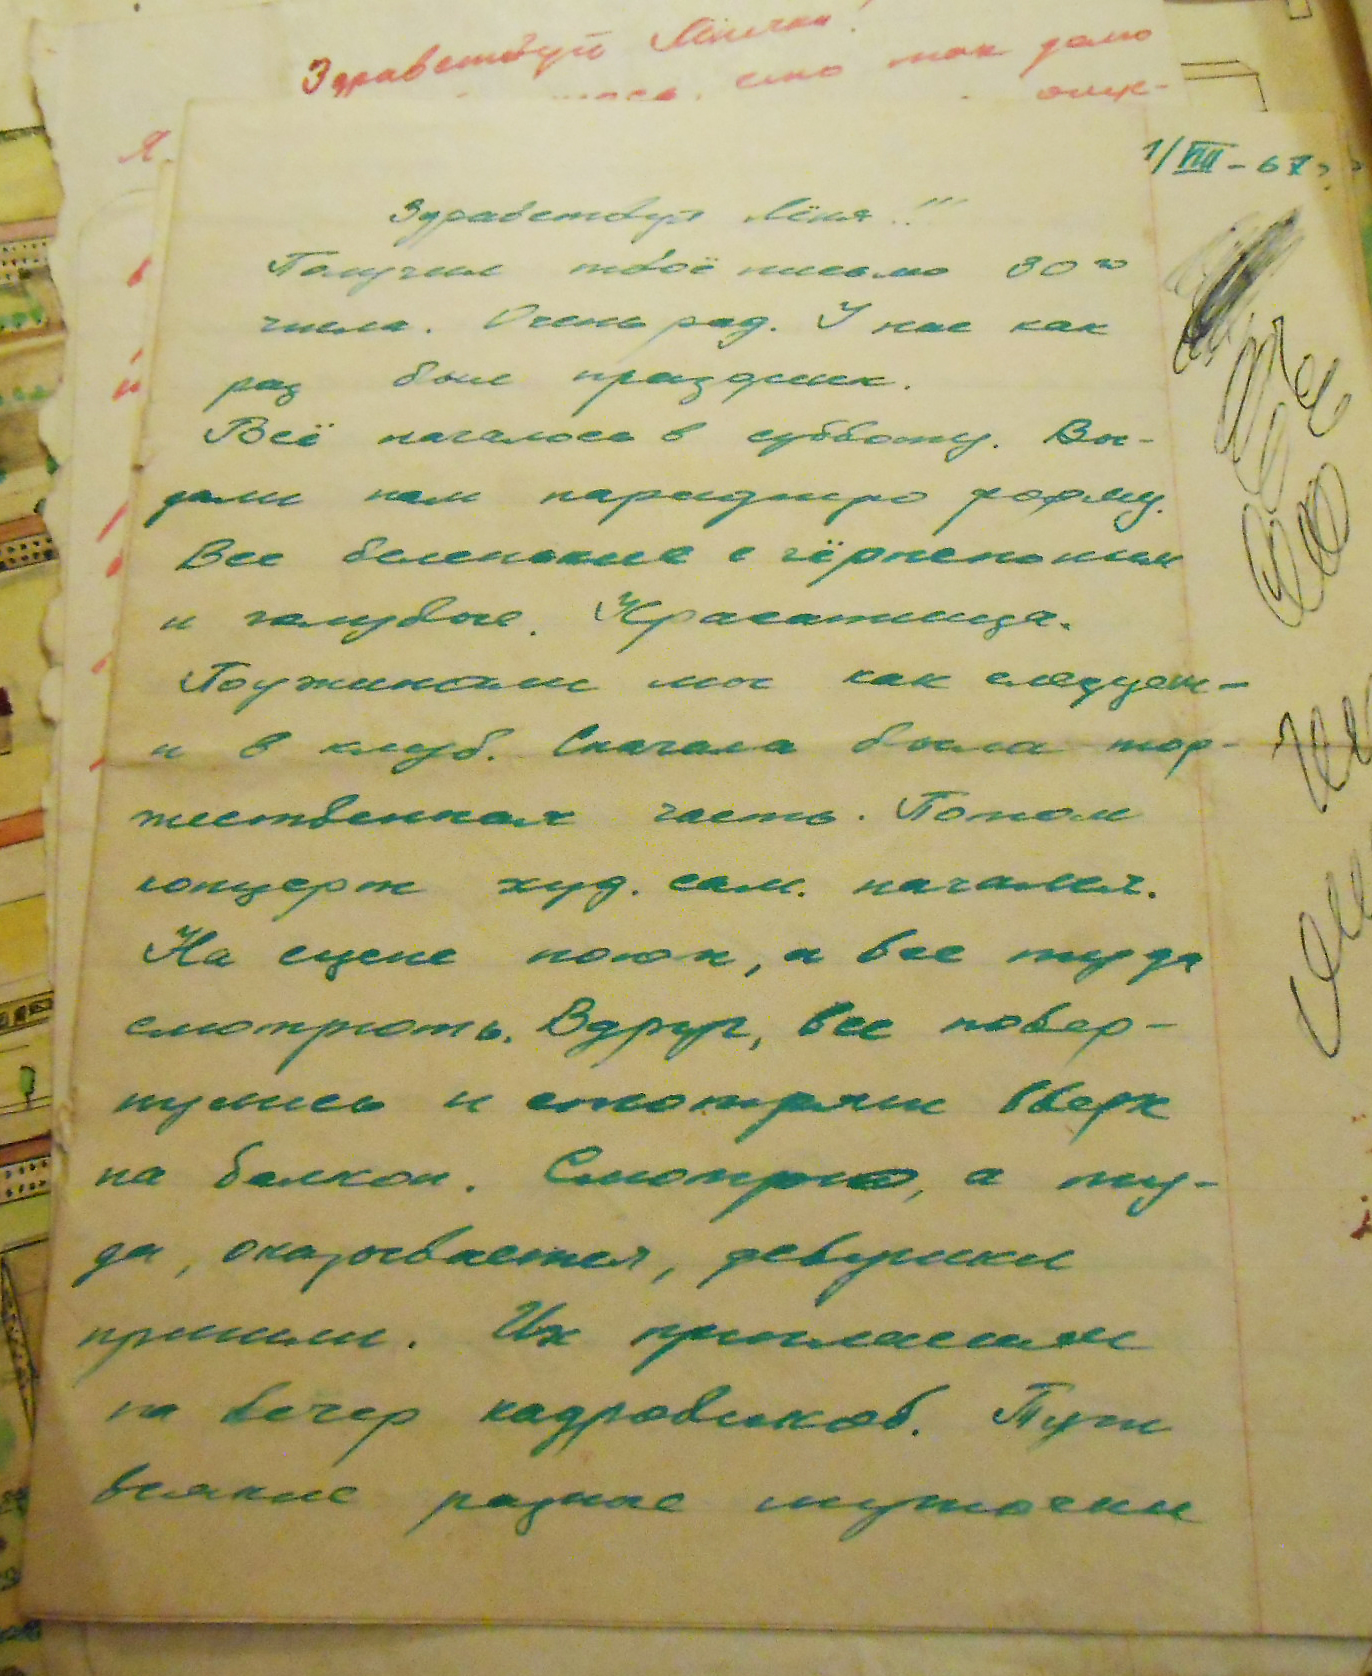 Здравствуй Лёнчик!
что так долго
Я
1/VIII-67г.
Здравствуй Лёня!!!
Получил твоё письмо 30го
числа. Очень рад. У нас как
раз был праздник.
Всё началось в субботу. Вы-
дали нам парадную форму.
Все беленькие с чёрненьким
и голубые. Красатища.
Поужинали мы как следует-
и в клуб. Сначала была тор-
жественная часть. Потом
концерт худ. сам. начался.
На сцене поют, и все туда
смотрють. Вдруг, все повер-
нулись и смотрят вверх
на балкон. Смотрю, а ту-
да, оказывается, девушки
пришли. Их пригласили
на вечер кадровиков. Тут
всякие разные шуточки